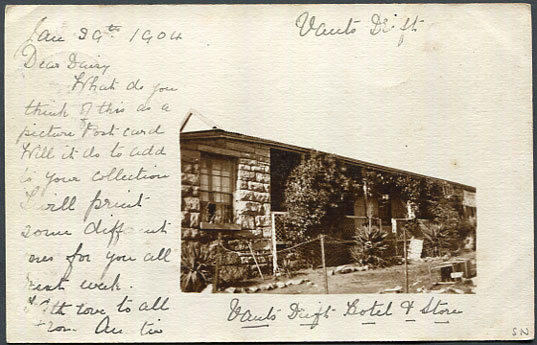 Jan 29th 1904
Vants Drift
Dear Daisy
What do you
think of this as a
picture Post card
Will it do to add
to your collection
I will print
some diff ent
ones for you all
next week.
With love to all
from
Vants Drift Hotel & Store
SN